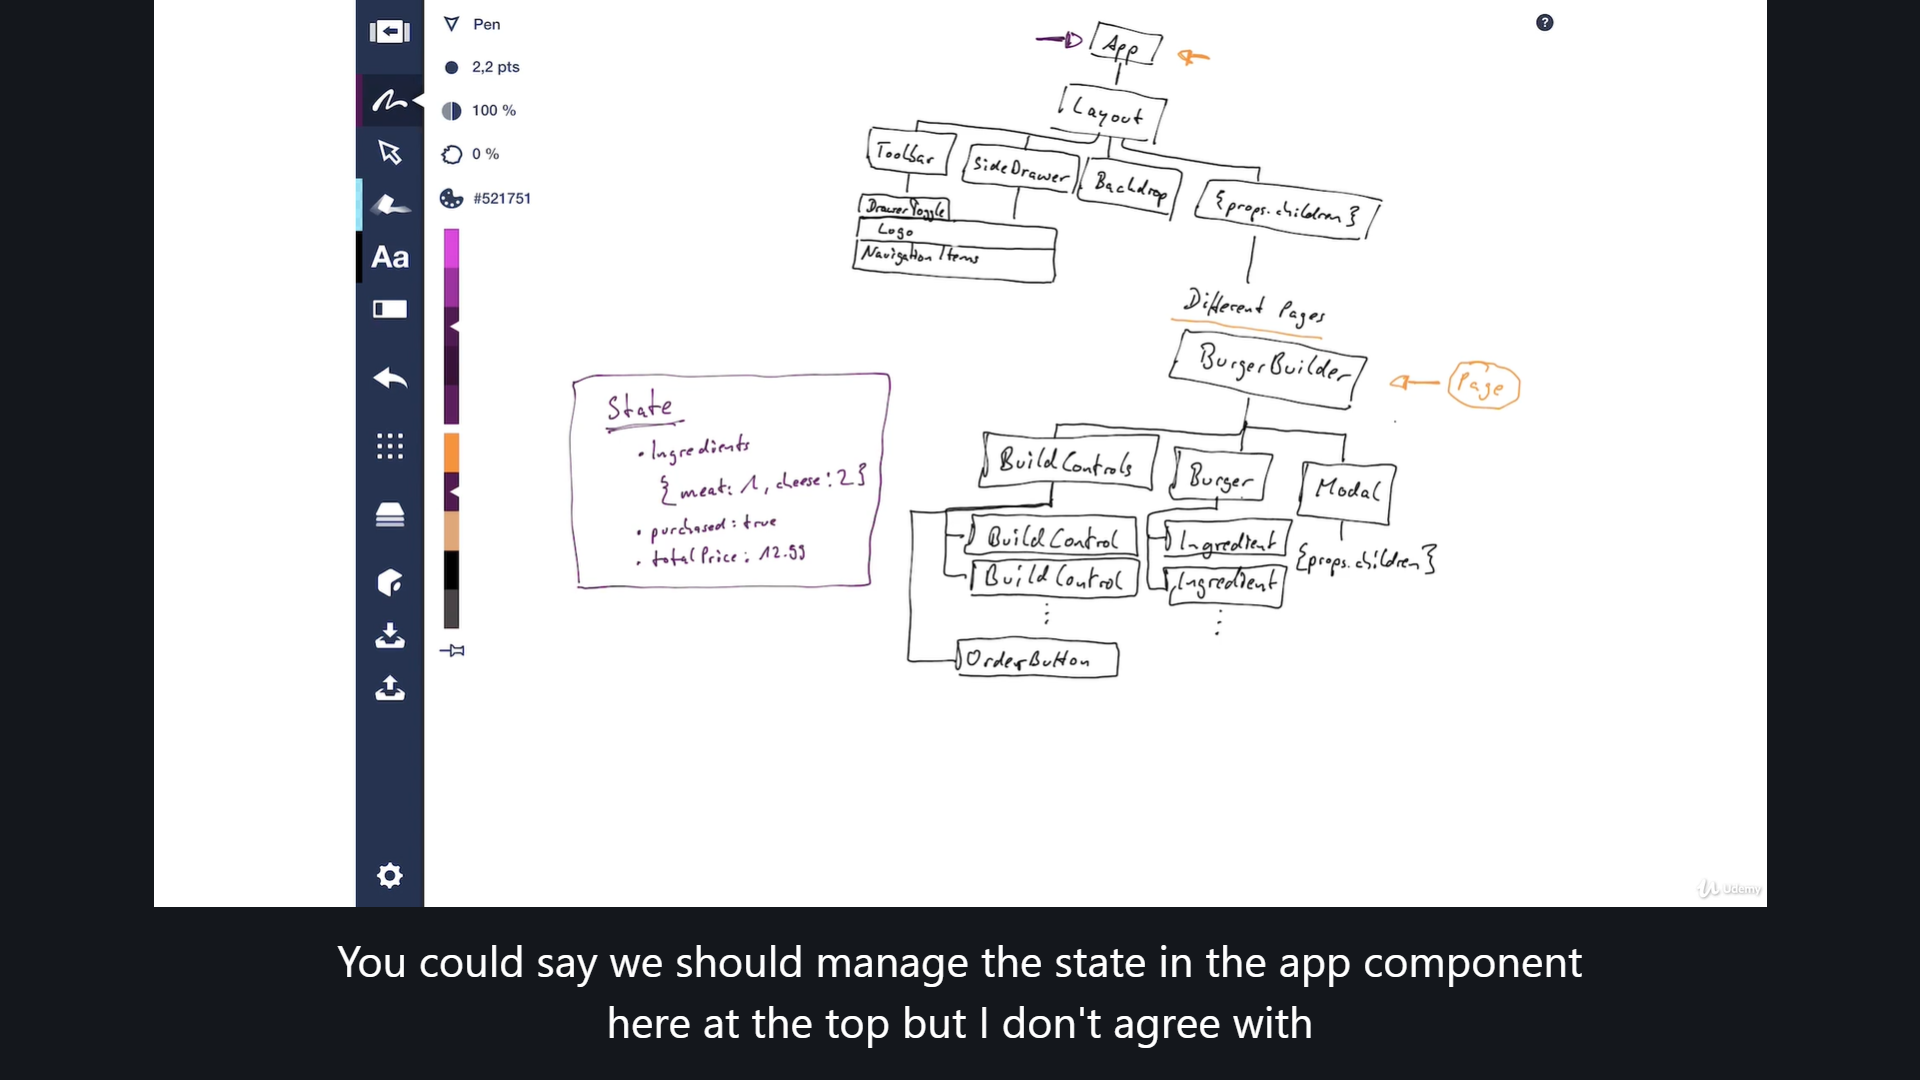 Pen
2,2 pts
100 %
0 %
#521751
Aa
?
App
Layout
Toolbar
SideDrawer
Backdrop
{props.children}
DrawerToggle
Logo
Navigation Items
Different Pages
BurgerBuilder
Page
State
• Ingredients
{meat: 1, cheese: 2}
• purchased: true
• totalPrice: 12.99
BuildControls
Burger
Modal
BuildControl
BuildControl
⋮
OrderButton
Ingredient
Ingredient
⋮
{props.children}
Udemy
You could say we should manage the state in the app component
here at the top but I don't agree with